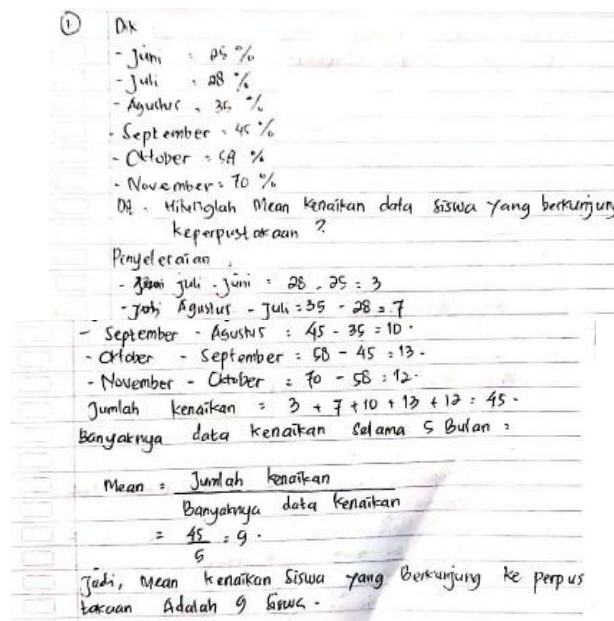 ① Dik
- Juni : 25 %
- Juli : 28 %
- Agustus : 35 %
- September : 45 %
- Oktober : 58 %
- November : 70 %
Dit . Hitunglah Mean kenaikan data siswa yang berkunjung
keperpustakaan ?
Pinyeleraian :
- Juli - Juni : 28 - 25 = 3
- Agustus - Juli = 35 - 28 = 7
- September - Agustus : 45 - 35 = 10 .
- Oktober - September : 58 - 45 = 13 .
- November - Oktober : 70 - 58 = 12 .
Jumlah kenaikan = 3 + 7 + 10 + 13 + 12 = 45 .
Banyaknya data kenaikan Selama 5 Bulan :
Mean = Jumlah kenaikan
Banyaknya data kenaikan
= 45
5 = 9 .
Jadi, Mean kenaikan Siswa yang Berkunjung ke perpus
takaan Adalah 9 Siswa .